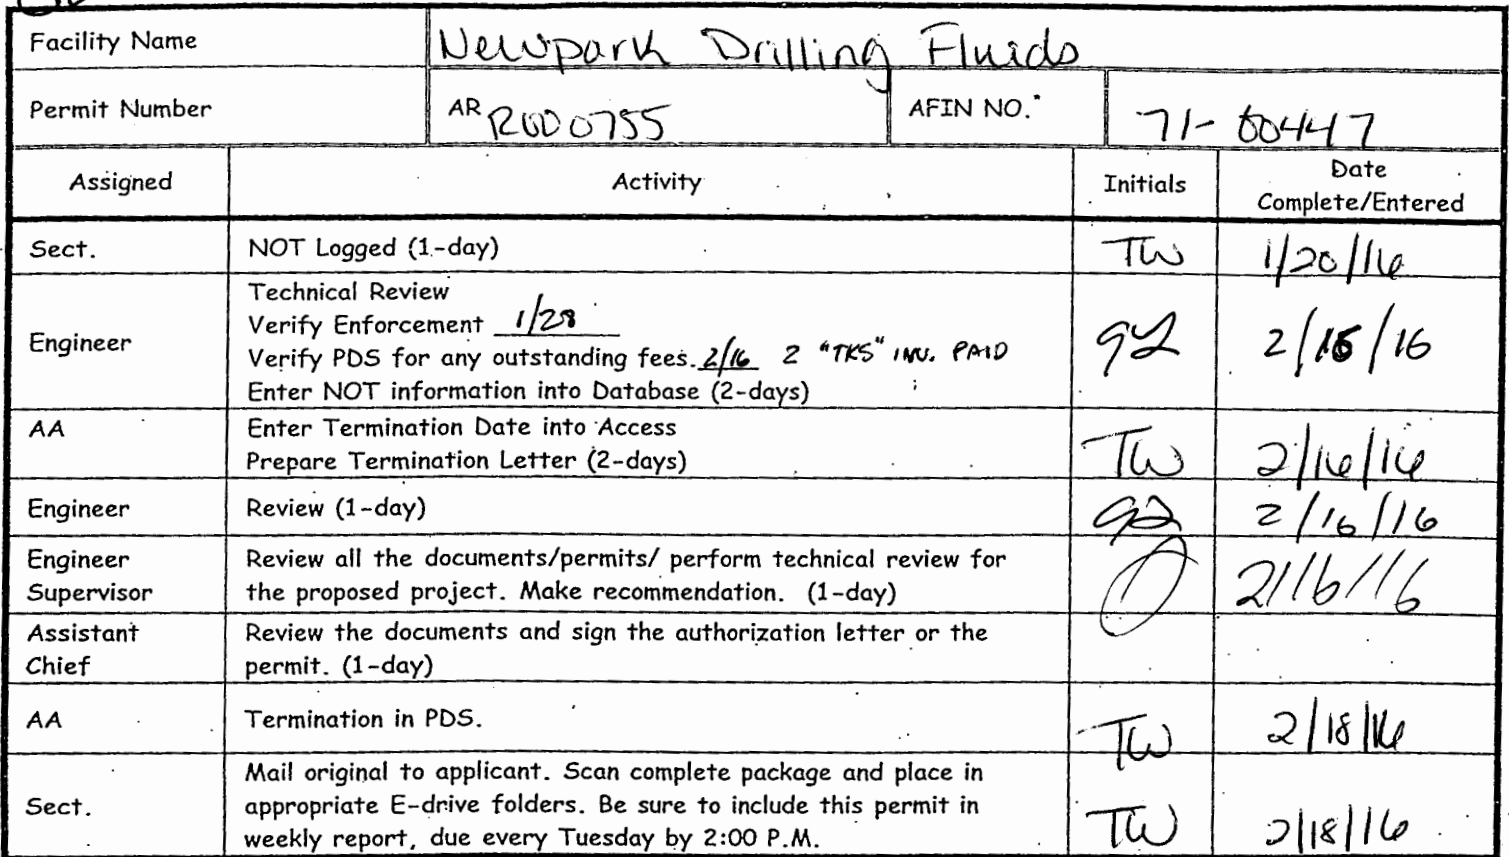 Facility Name Newpark Drilling Fluids
Permit Number AR R000755 AFIN NO. 71-00447
Assigned Activity Initials Date
Complete/Entered
Sect. NOT Logged (1-day) TW 1/20/16
Technical Review
Verify Enforcement 1/28
Engineer
Verify PDS for any outstanding fees. 2/16 2 "TKS" INV. PAID 2/16/16
Enter NOT information into Database (2-days)
AA Enter Termination Date into Access
Prepare Termination Letter (2-days) TW 2/16/16
Engineer Review (1-day) 2/16/16
Engineer Review all the documents/permits/ perform technical review for
Supervisor the proposed project. Make recommendation. (1-day) 2/16/16
Assistant Review the documents and sign the authorization letter or the
Chief permit. (1-day)
AA Termination in PDS. TW 2/18/16
Mail original to applicant. Scan complete package and place in
Sect. appropriate E-drive folders. Be sure to include this permit in
weekly report, due every Tuesday by 2:00 P.M. TW 2/18/16